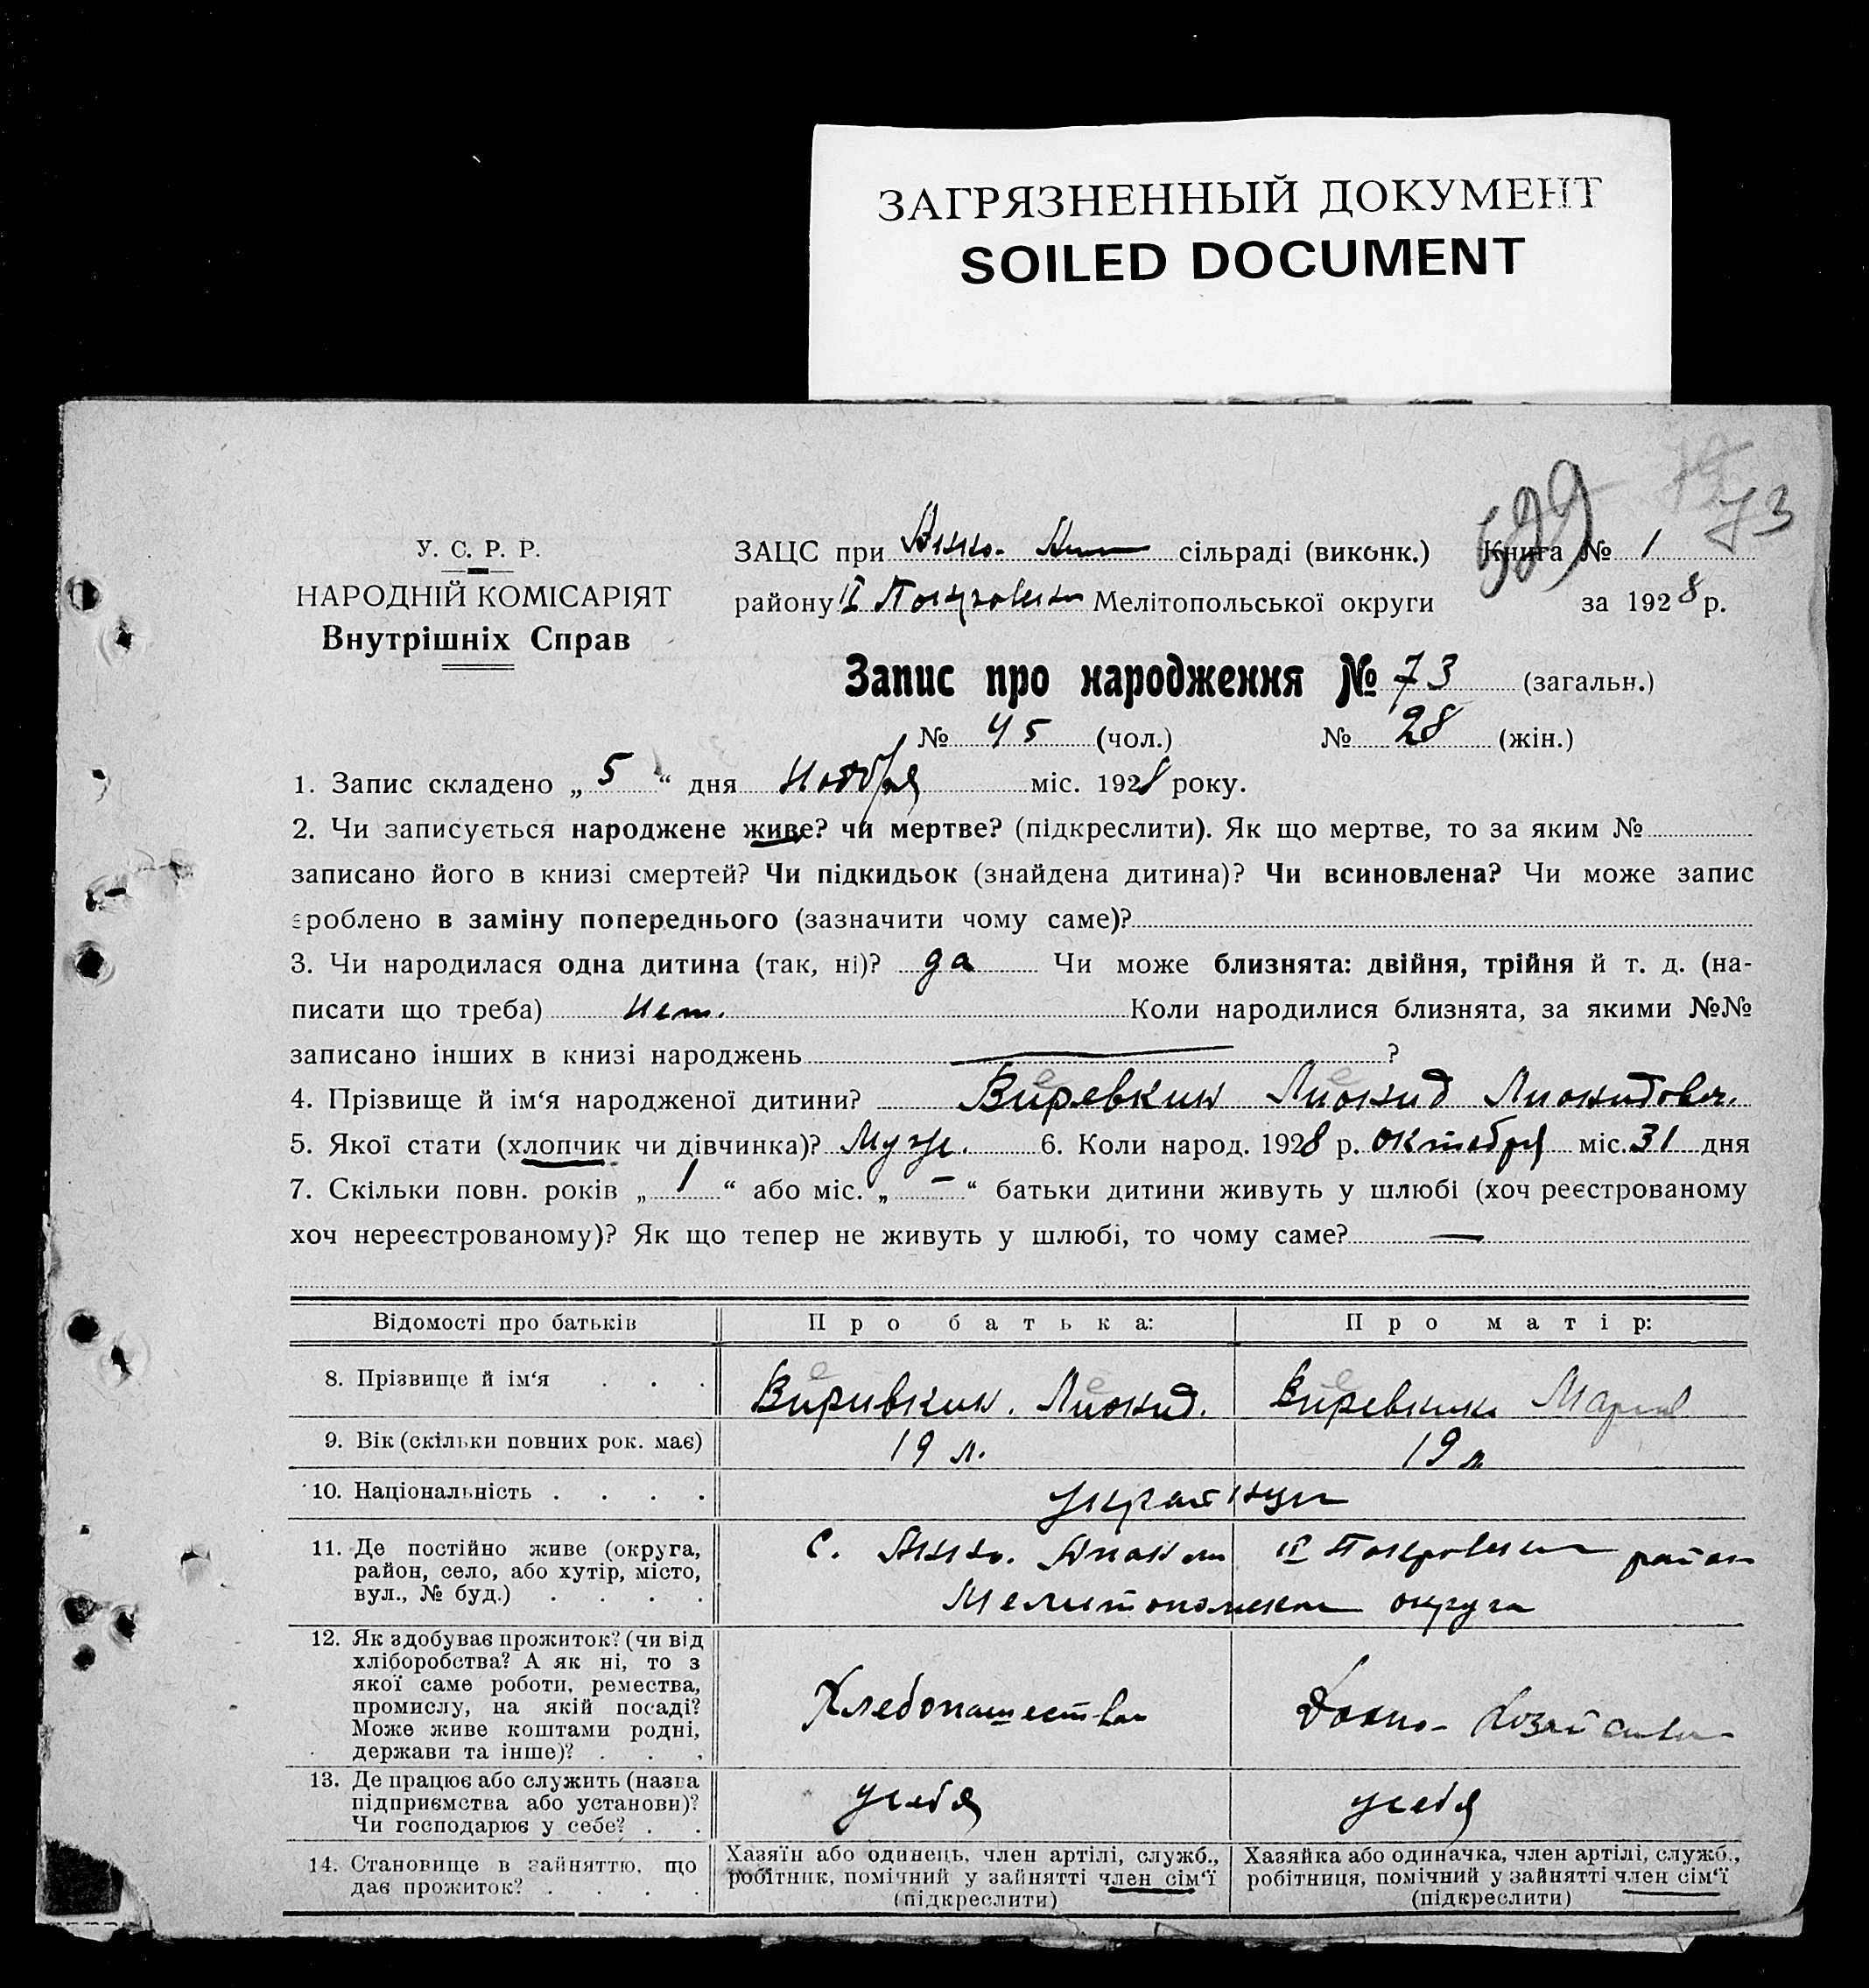 ЗАГРЯЗНЕННЫЙ ДОКУМЕНТ
SOILED DOCUMENT
73
У. С. Р. Р.
НАРОДНІЙ КОМІСАРІЯТ
Внутрішніх Справ
ЗАЦС при сільраді (виконк.) Книга № 1
району ІІ Мелітопольської округи за 1928 р.
Запис про народження № 73 (загальн.)
№ 45 (чол.) № 28 (жін.)
1. Запис складено „5“ дня Ноября міс. 1928 року.
2. Чи записується народжене живе? чи мертве? (підкреслити). Як що мертве, то за яким №
записано його в книзі смертей? Чи підкидьок (знайдена дитина)? Чи всиновлена? Чи може запис
зроблено в заміну попереднього (зазначити чому саме)?
3. Чи народилася одна дитина (так, ні)? да Чи може близнята: двійня, трійня й т. д. (на-
писати що треба) Нет. Коли народилися близнята, за якими №№
записано інших в книзі народжень ?
4. Прізвище й ім‘я народженої дитини? Виревкин Лионид Лионидович.
5. Якої стати (хлопчик чи дівчинка)? Муж. 6. Коли народ. 1928 р. октября міс. 31 дня
7. Скільки повн. років „1“ або міс. „–“ батьки дитини живуть у шлюбі (хоч реєстрованому
хоч нереєстрованому)? Як що тепер не живуть у шлюбі, то чому саме? —
Відомості про батьків Про батька: Про матір:
8. Прізвище й ім‘я . . . Виривкин. Лионид. Виревкина Мария
9. Вік (скільки повних рок. має) 19 л. 19 л
10. Національність . . . . украинцы
11. Де постійно живе (округа,
район, село, або хутір, місто,
вул., № буд.) . . . .
с. ІІ Покровского район
Мелитопольской округа
12. Як здобуває прожиток? (чи від
хліборобства? А як ні, то з
якої саме роботи, ремества,
промислу, на якій посаді?
Може живе коштами родні,
держави та інше)? . . .
Хлебопашество Домо- хозяйство
13. Де працює або служить (назва
підприємства або установи)?
Чи господарює у себе? . .
у себя у себя
14. Становище в зайняттю, що
дає прожиток? . . . .
Хазяїн або одинець, член артілі, служб.,
робітник, помічний у зайнятті член сім‘ї
(підкреслити)
Хазяйка або одиначка, член артілі, служб.,
робітниця, помічний у зайнятті член сім‘ї
(підкреслити)